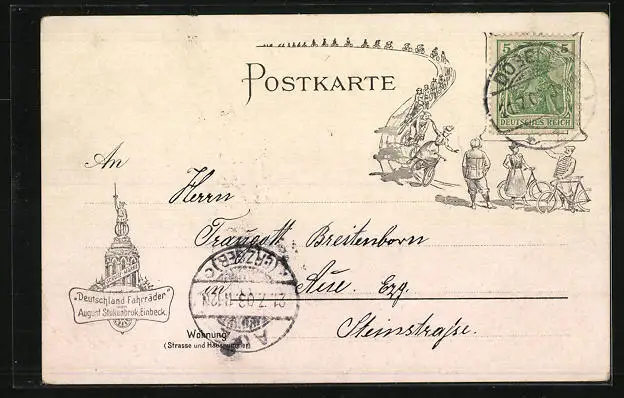 POSTKARTE
5 5
DEUTSCHES REICH
An
Herrn
Traugott Breitenborn
in Aue. Erzg.
Steinstraße.
"Deutschland Fahrräder"
August Stukenbrok, Einbeck.
Wohnung
(Strasse und Hausnummer)
(ERZGEB)
21.7.03.
AUE